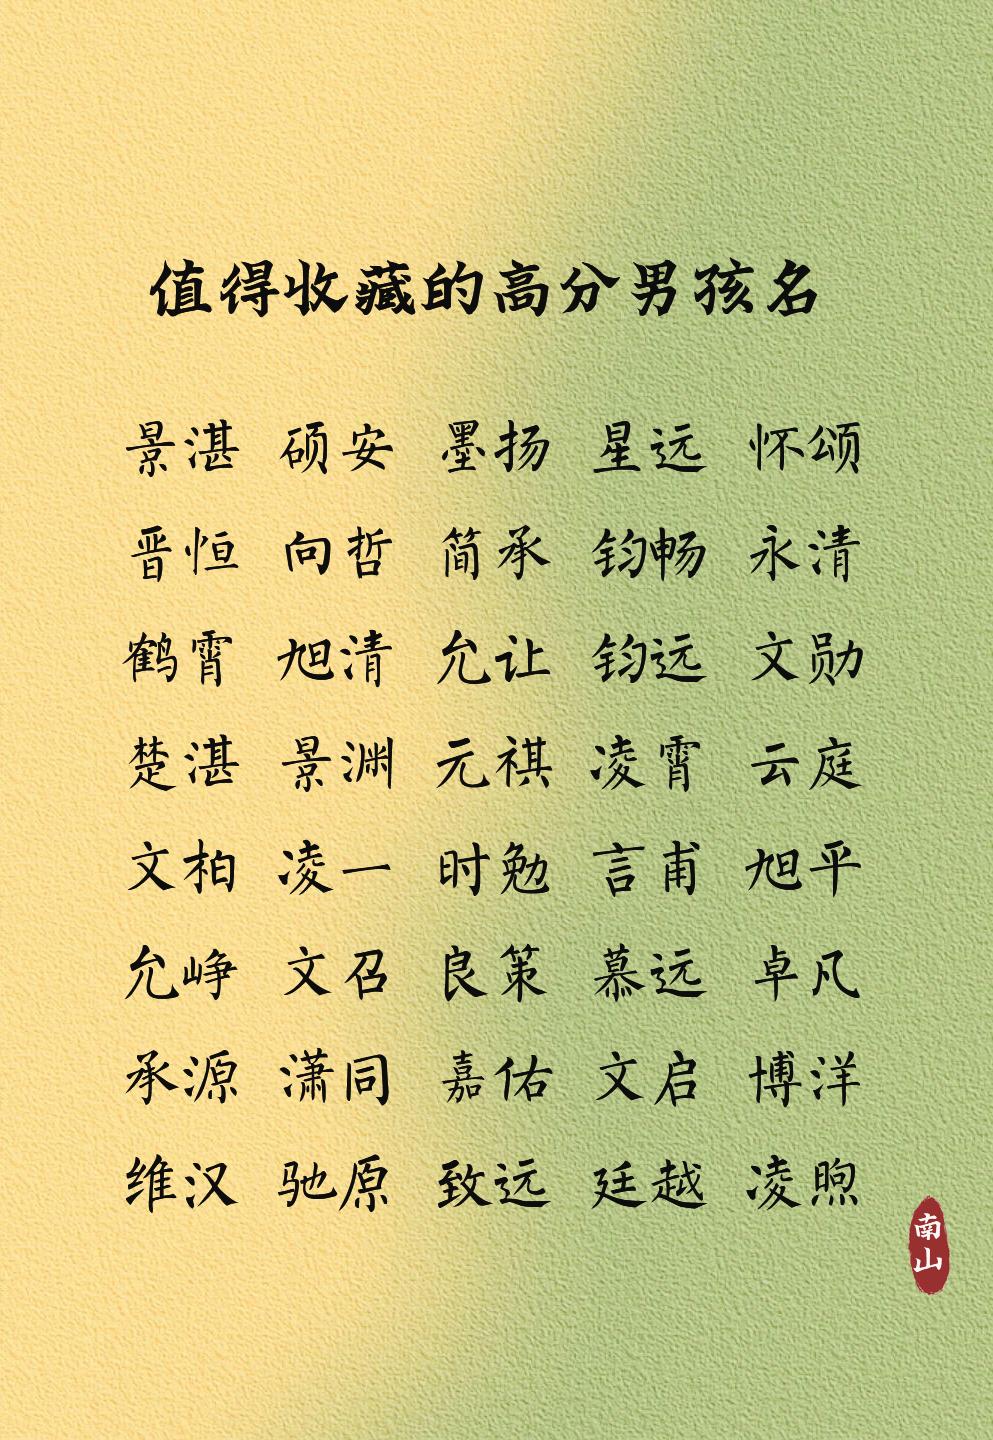 值得收藏的高分男孩名
景湛 硕安 墨扬 星远 怀颂
晋恒 向哲 简承 钧畅 永清
鹤霄 旭清 允让 钧远 文勋
楚湛 景渊 元祺 凌霄 云庭
文柏 凌一 时勉 言甫 旭平
允峥 文召 良策 慕远 卓凡
承源 潇同 嘉佑 文启 博洋
维汉 驰原 致远 廷越 凌煦
南山